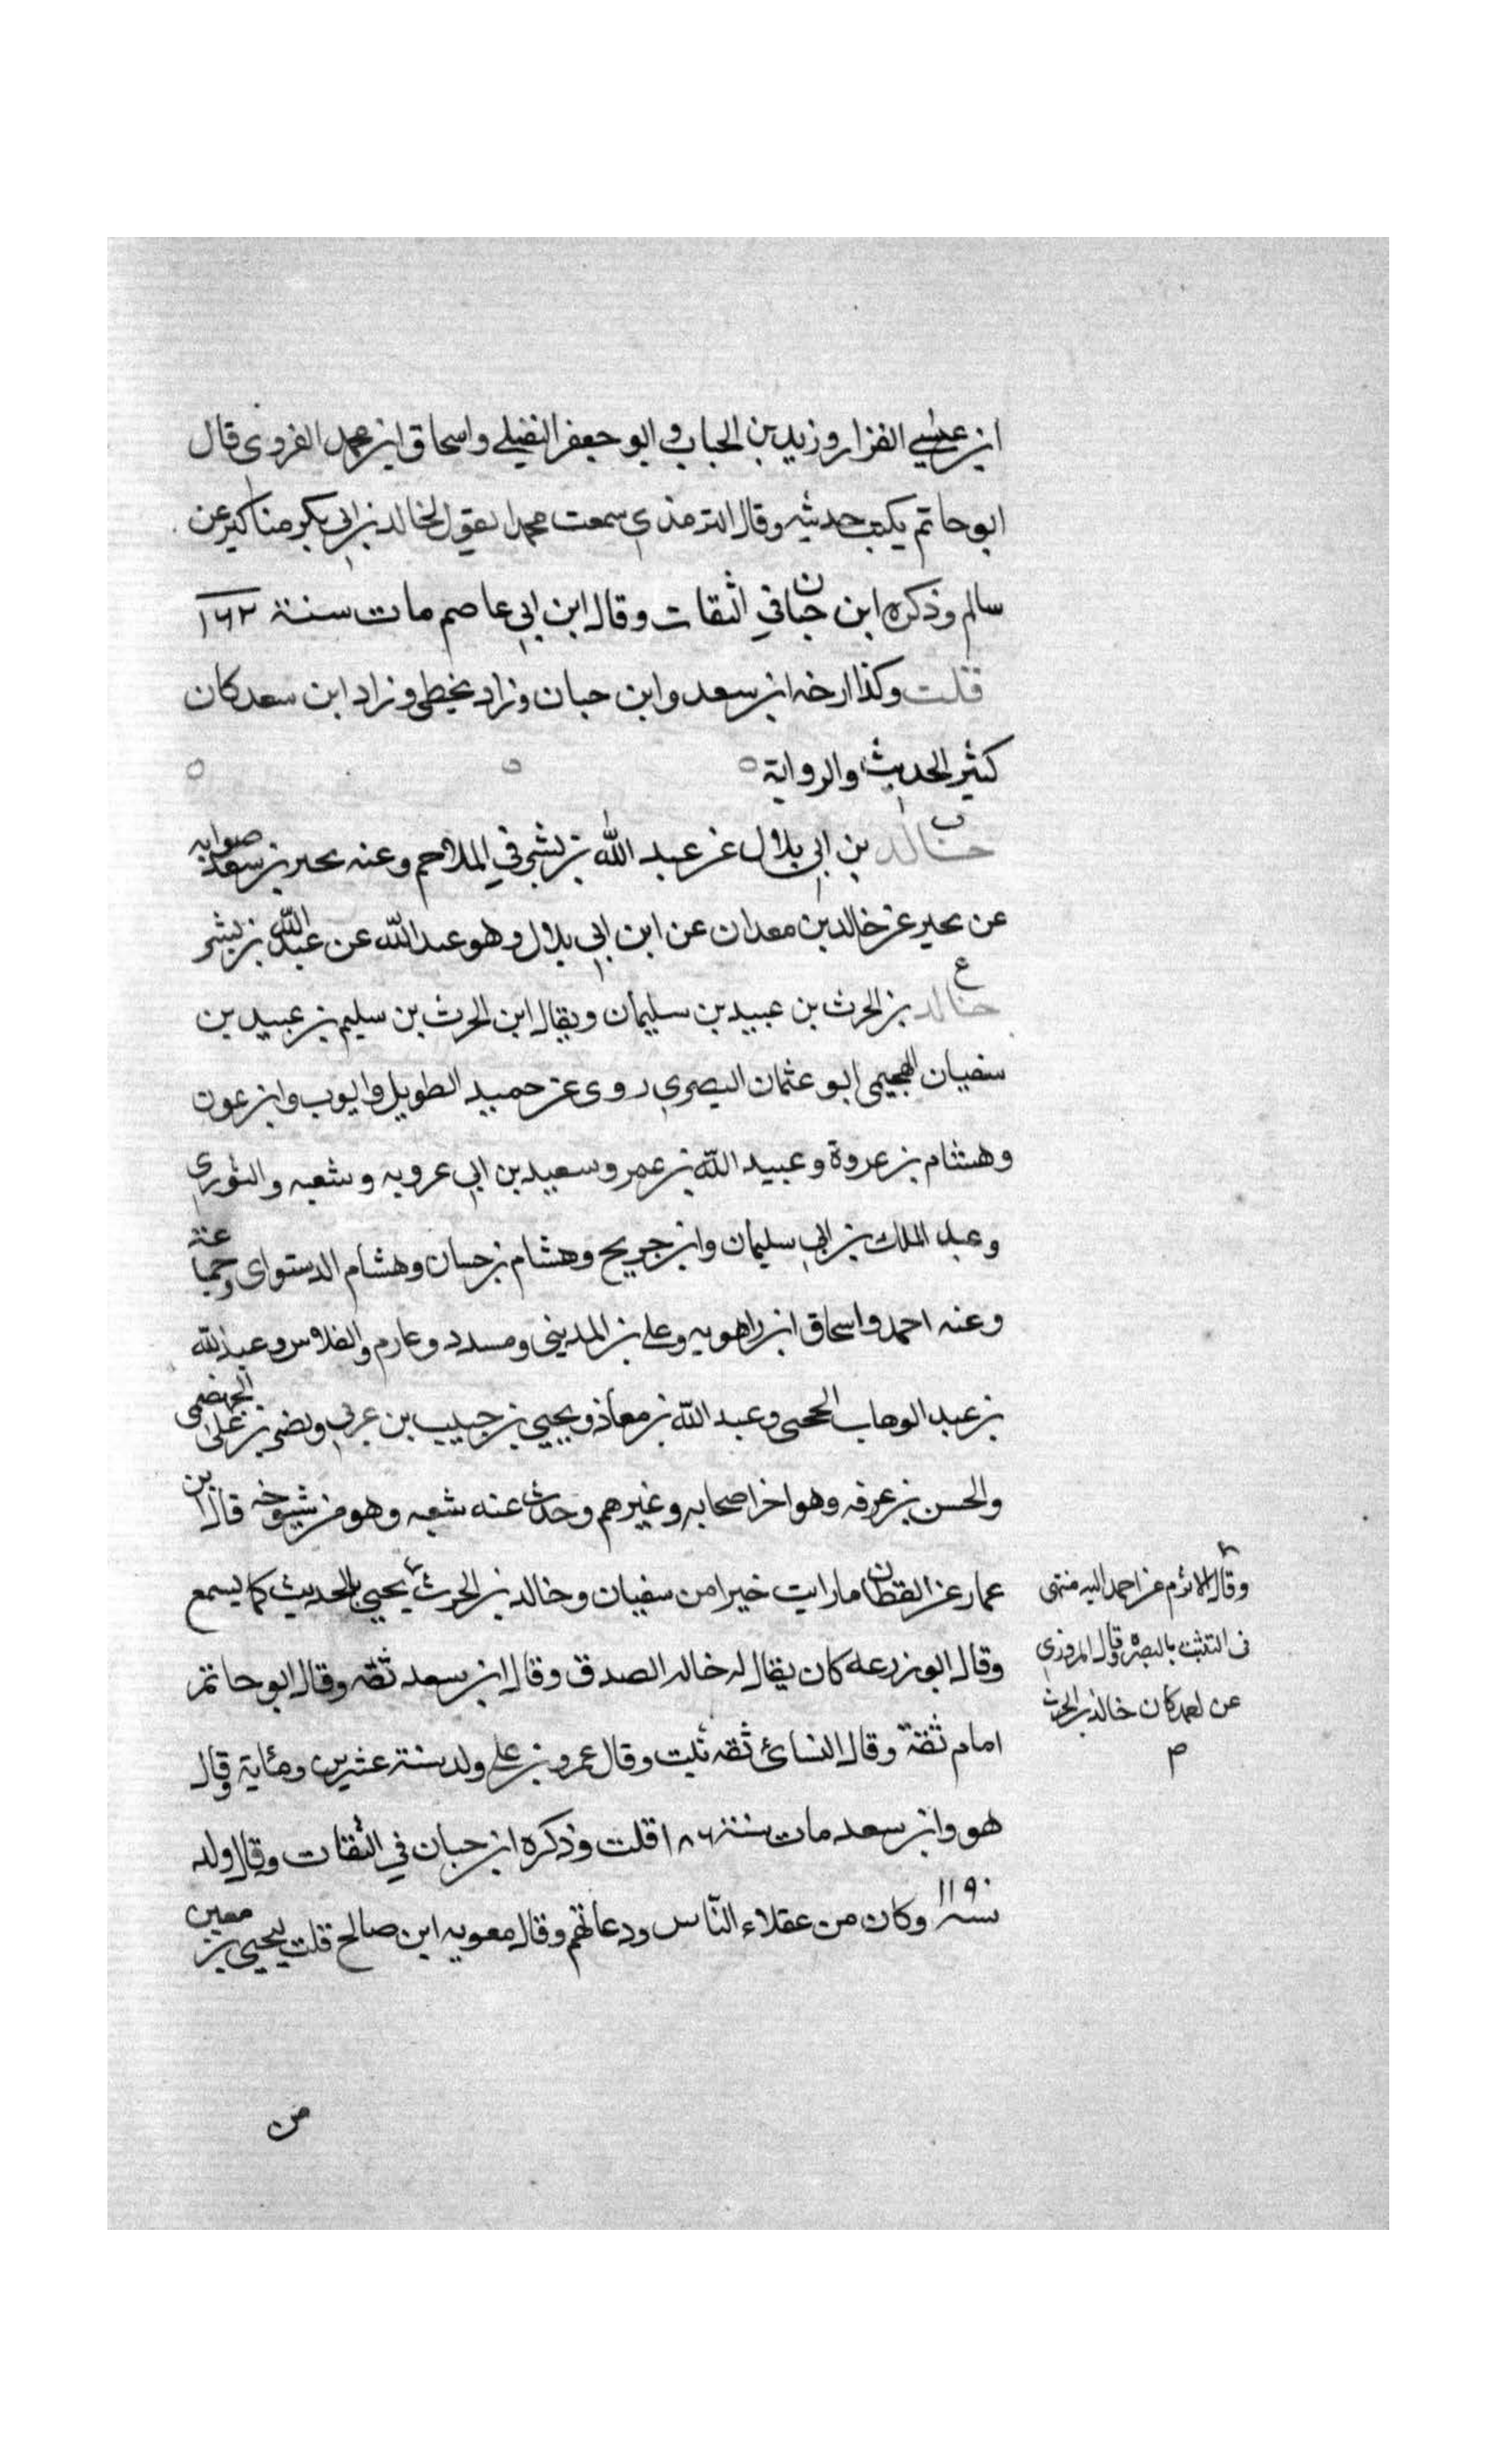 ابن عيسى الفزار وزيد بن الحباب و ابو جعفر النفيلي واسحاق ابن محمد الفروي قال
ابو حاتم يكتب حديثه وقال الترمذي سمعت محمدا يقول لخالد بن ابي بكر مناكير عن
سالم وذكره ابن حبان في الثقات وقال ابن ابي عاصم مات سنة ١٦٢
قلت وكذا ارخه ابن سعد وابن حبان وزاد يخطى وزاد ابن سعد كان
كثير الحديث والرواية
خالد بن ابي بلال عن عبد الله بن بشر في الملاحم وعنه بحير بن سعد صوابه
عن بحير عن خالد بن معدان عن ابن ابي بلال وهو عبد الله عن عبد الله بن بشر
ع
خالد بن الحرث بن عبيد بن سليمان ويقال ابن الحرث بن سليم بن عبيد بن
سفيان الهجيمى ابو عثمان البصري روى عن حميد الطويل وايوب وابن عون
وهشام بن عروة وعبيد الله بن عمر وسعيد بن ابي عروبه وشعبه والثوري
وعبد الملك بن ابي سليمان وابن جريج وهشام بن حسان وهشام الدستواى وجماعة
وعنه احمد واسحاق ابن راهويه وعلي بن المديني ومسدد وعارم والفلاس وعبد الله
بن عبد الوهاب الحجبى وعبد الله بن معاذ ويحيى بن حبيب بن عربي ونصر بن على الجهضمى
والحسن بن عرفه وهو اخر اصحابه وغيرهم وحدث عنه شعبه وهو من شيوخه قال ابن
عمار عن القطان ما رايت خيرا من سفيان وخالد بن الحرث يحيى بالحديث كما يسمع
وقال ابو زرعه كان يقال له خالد الصدق وقال ابن سعد ثقه وقال ابو حاتم
امام ثقة وقال النسائ ثقه ثبت وقال عمرو بن علي ولد سنة عشرين ومئاية وقال
هو وابن سعد مات سنة ١٨٦ قلت وذكره ابن حبان في الثقات وقال ولد
سنه ١١٩٠ وكان من عقلاء الناس ودهاتهم وقال معويه ابن صالح قلت ليحيى بن معين
وقال الاثرم عن احمد اليه المنتهى
فى التثبت بالبصره وقال المروزي
عن احمد كان خالد بن الحرث
م
من